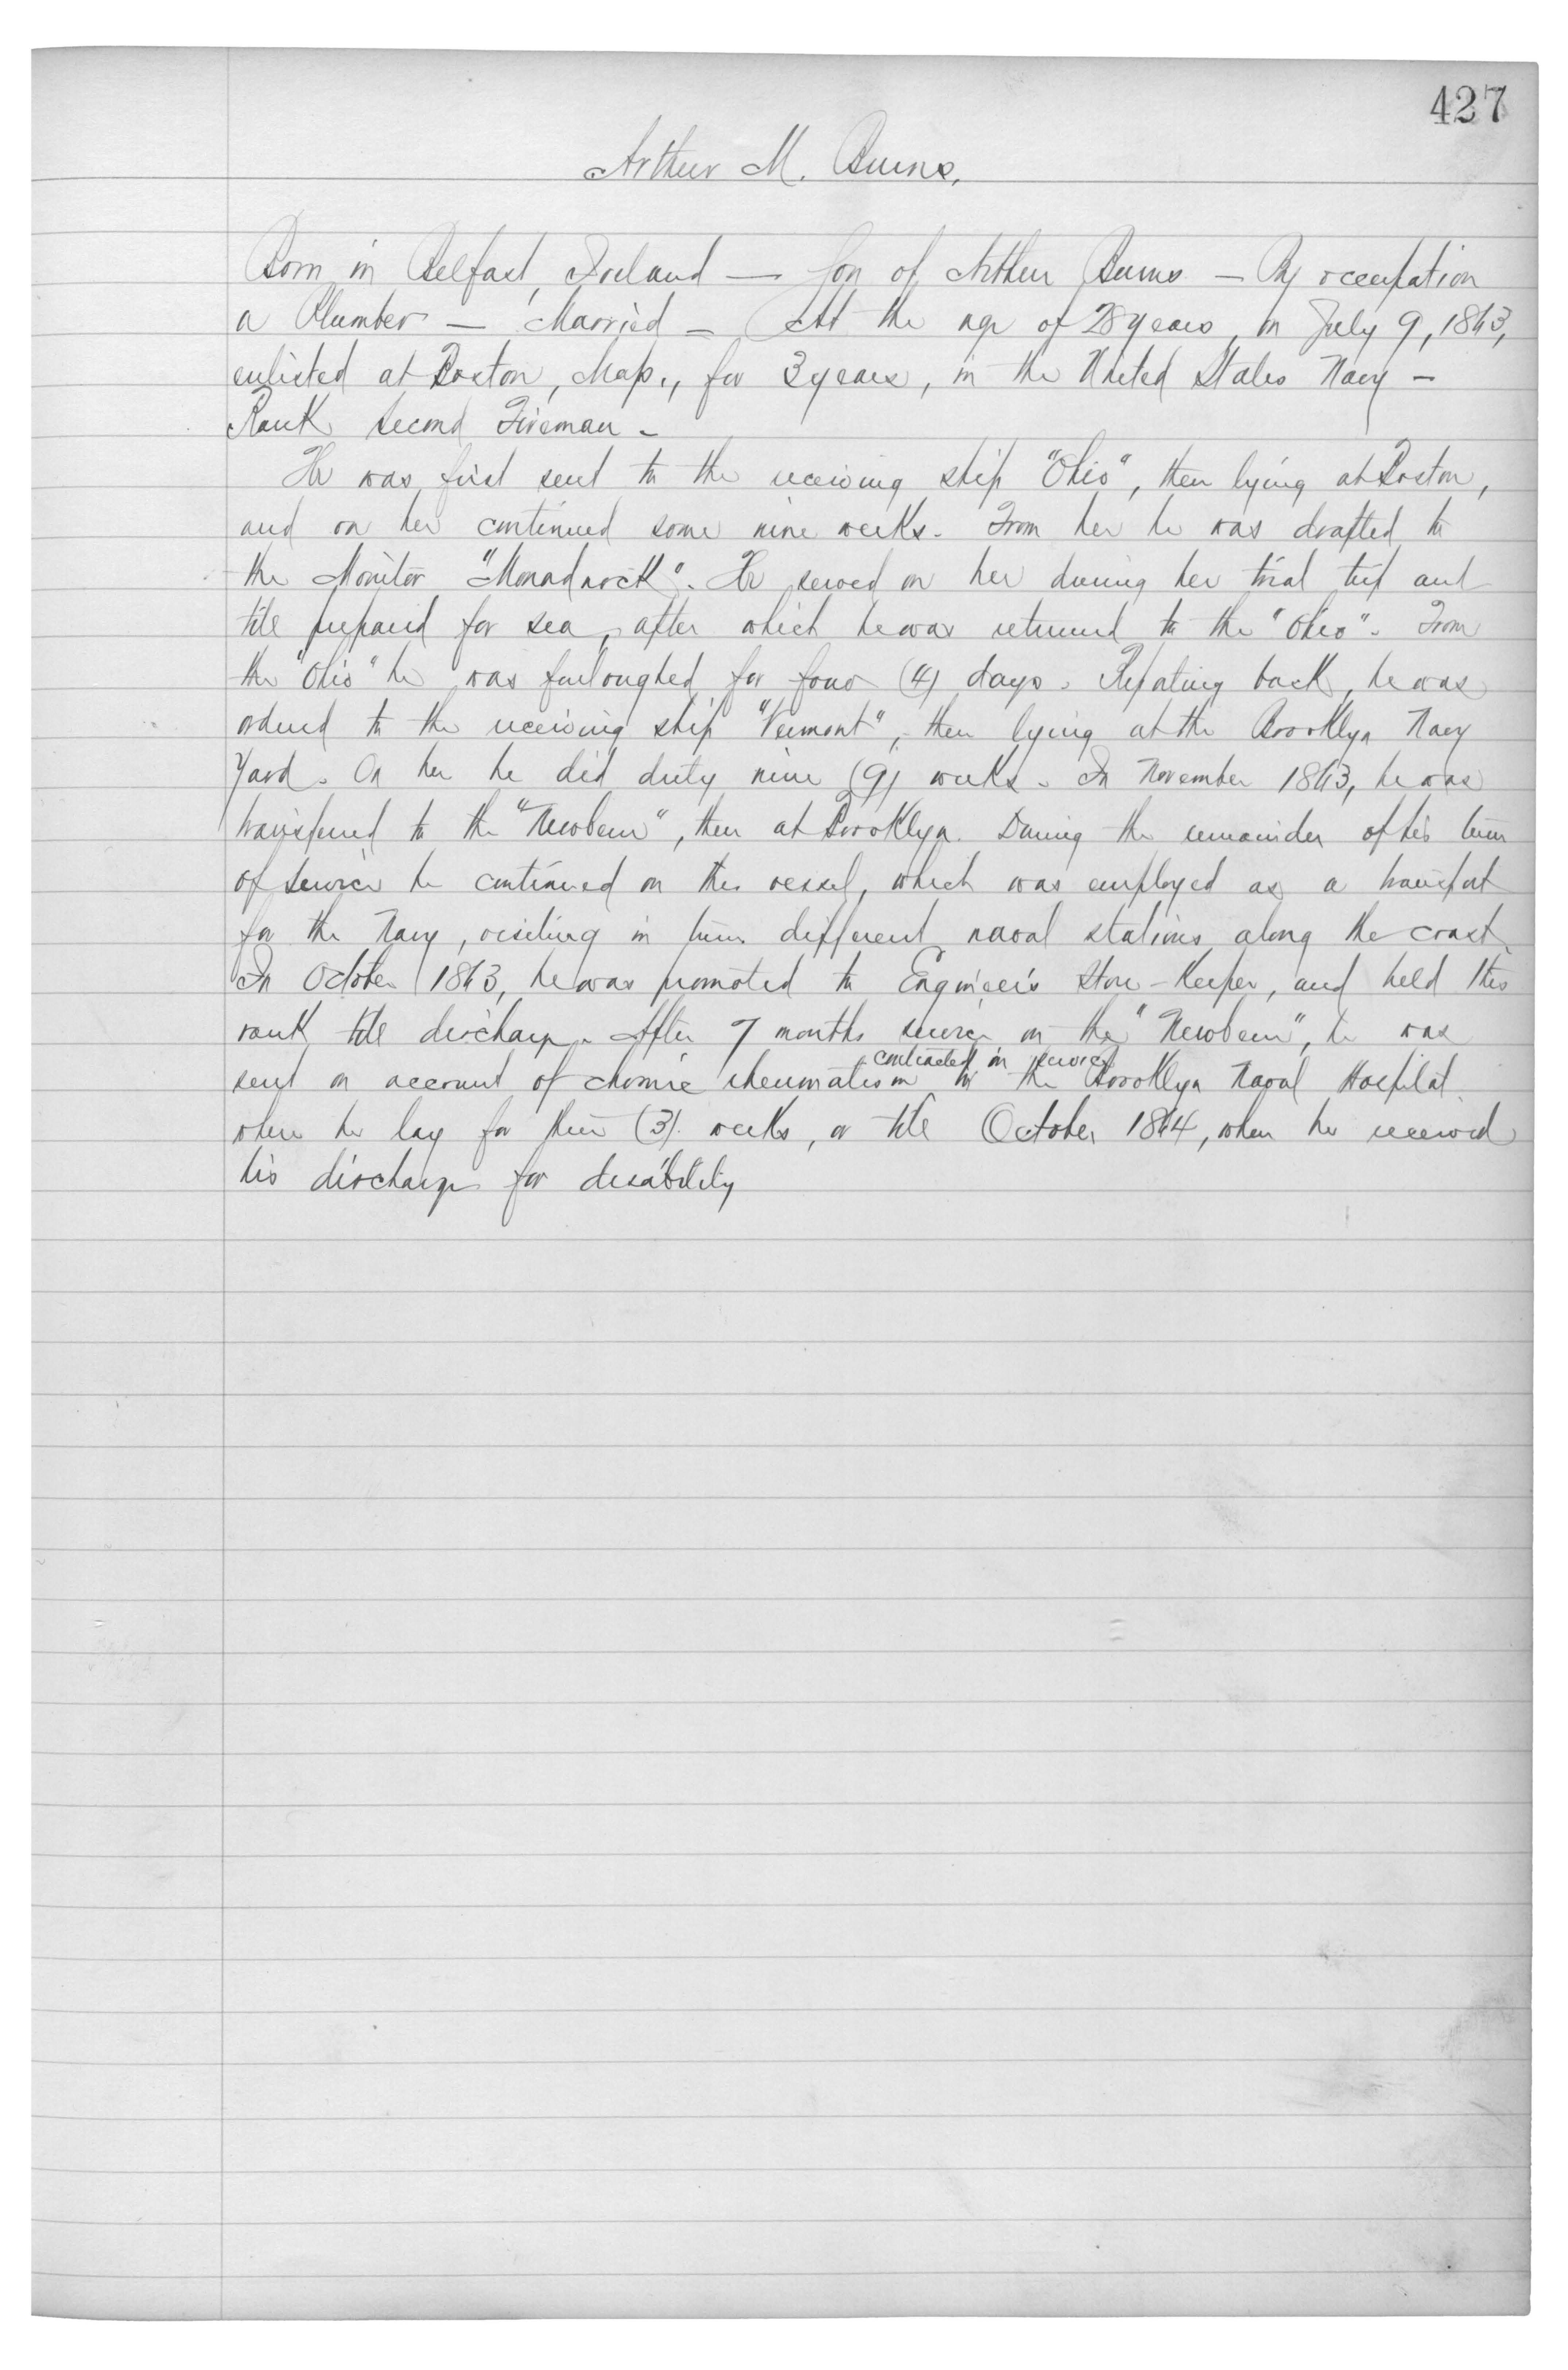 427
Arthur M. Burns.
Born in Belfast, Ireland — Son of Arthur Burns — By occupation
a Plumber — Married — At the age of 28 years, on July 9, 1863,
enlisted at Boston, Mass., for 3 years, in the United States Navy —
Rank Second Fireman —
He was first sent to the receiving ship "Ohio", then lying at Boston,
and on her continued some nine weeks. From her he was drafted to
the Monitor "Monadnock". He served on her during her trial trip and
till prepared for sea, after which he was returned to the "Ohio". From
the "Ohio" he was furloughed for four (4) days. Reporting back, he was
ordered to the receiving ship "Vermont", then lying at the Brooklyn Navy
Yard. On her he did duty nine (9) weeks. In November 1863, he was
transferred to the "Newbern", then at Brooklyn. During the remainder of his term
of service he continued on this vessel, which was employed as a transport
for the Navy, visiting in turn different naval stations along the coast.
In October 1863, he was promoted to Engineer's Store-Keeper, and held this
rank till discharge. After 7 months service on the "Newbern", he was
contracted in service
sent on account of chronic rheumatism to the Brooklyn Naval Hospital
where he lay for three (3) weeks, or till October 1864, when he received
his discharge for disability